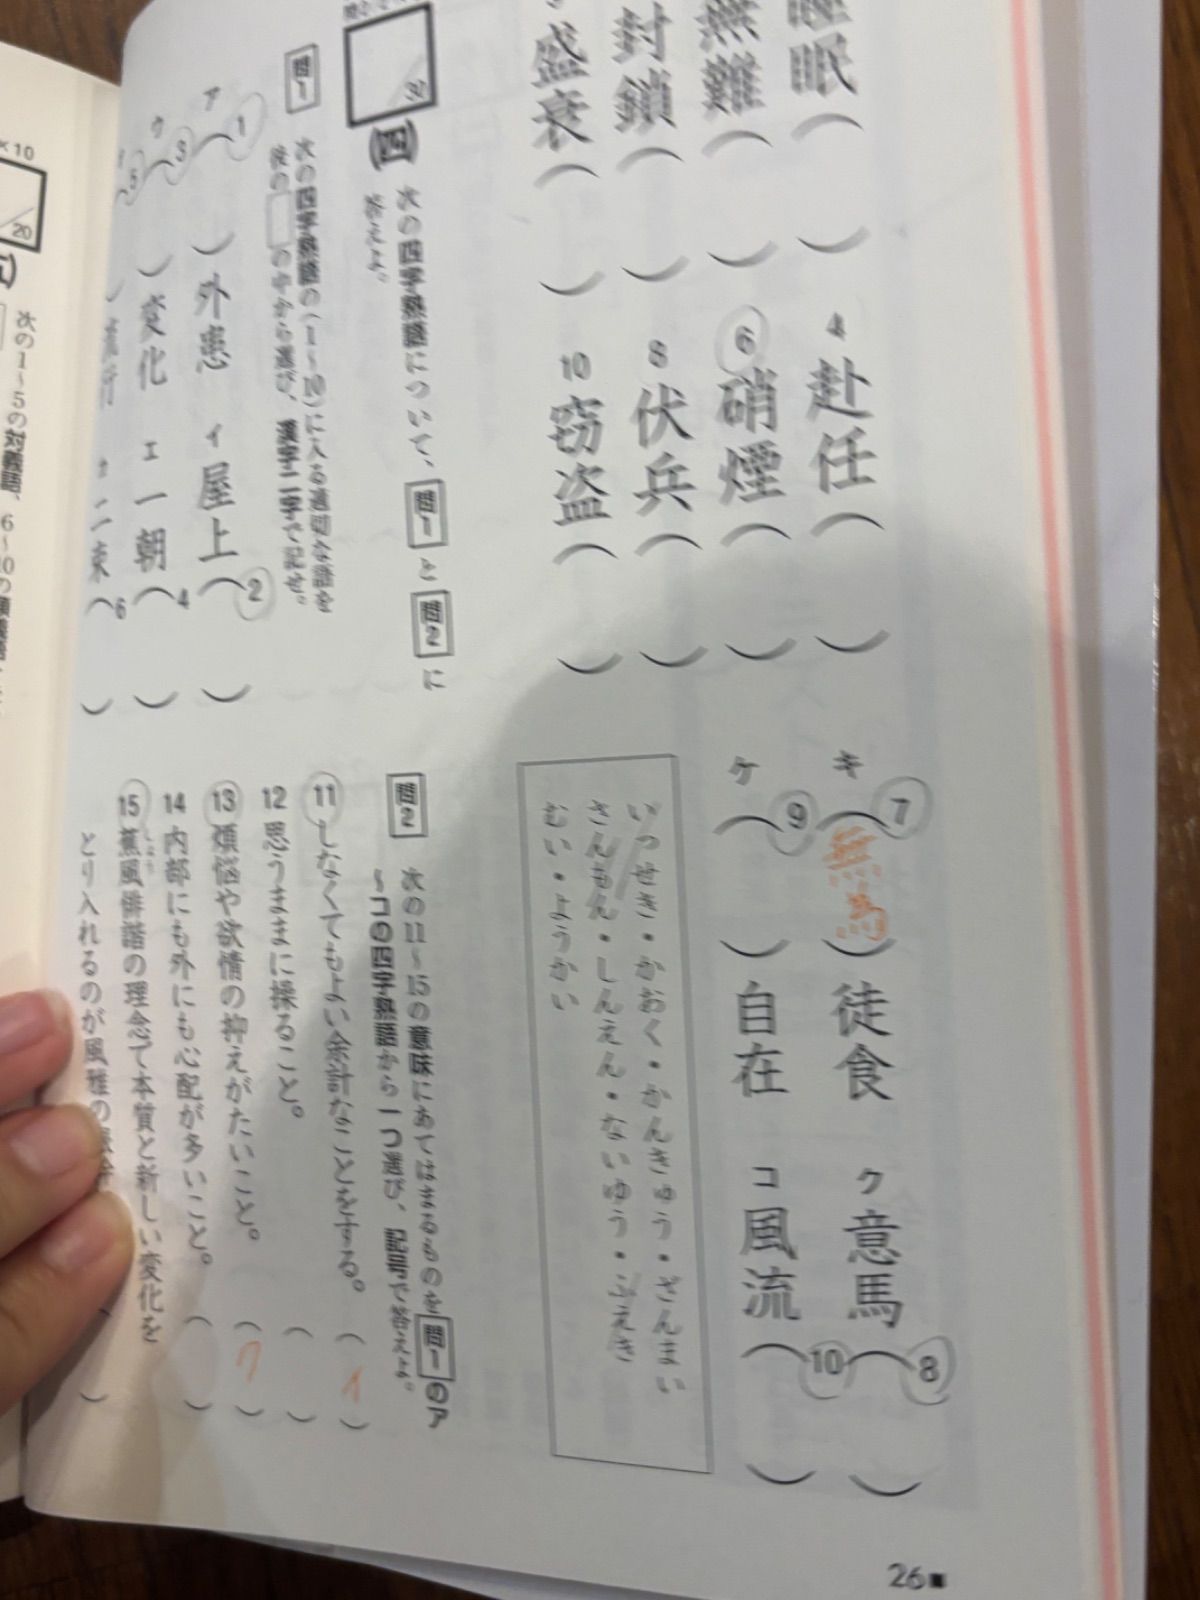 睡眠（　）
4 赴任（　）
無難（　）
⑥硝煙（　）
封鎖（　）
8 伏兵（　）
盛衰（　）
10 窃盗（　）
30
(四)
次の四字熟語について、問1と問2に
答えよ。
問1
次の四字熟語の(1〜10)に入る適切な語を
後の□の中から選び、漢字二字で記せ。
ア（1　）外患
イ 屋上（2　）
ウ（3　）変化
エ 一朝（4　）
（5　）流行
カ 二束（6　）
キ（7 無為）徒食
ク 意馬（8　）
ケ（9　）自在
コ 風流（10　）
いっせき・かおく・かんきゅう・ざんまい
さんもん・しんえん・ないゆう・ふえき
むい・ようかい
問2
次の11〜15の意味にあてはまるものを問1のア
〜コの四字熟語から一つ選び、記号で答えよ。
11 しなくてもよい余計なことをする。（イ）
12 思うままに操ること。（　）
13 煩悩や欲情の抑えがたいこと。（ク）
14 内部にも外にも心配が多いこと。（　）
15 蕉風俳諧の理念で本質と新しい変化を
とり入れるのが風雅の
26
×10
20
次の1〜5の対義語、6〜10の類義語